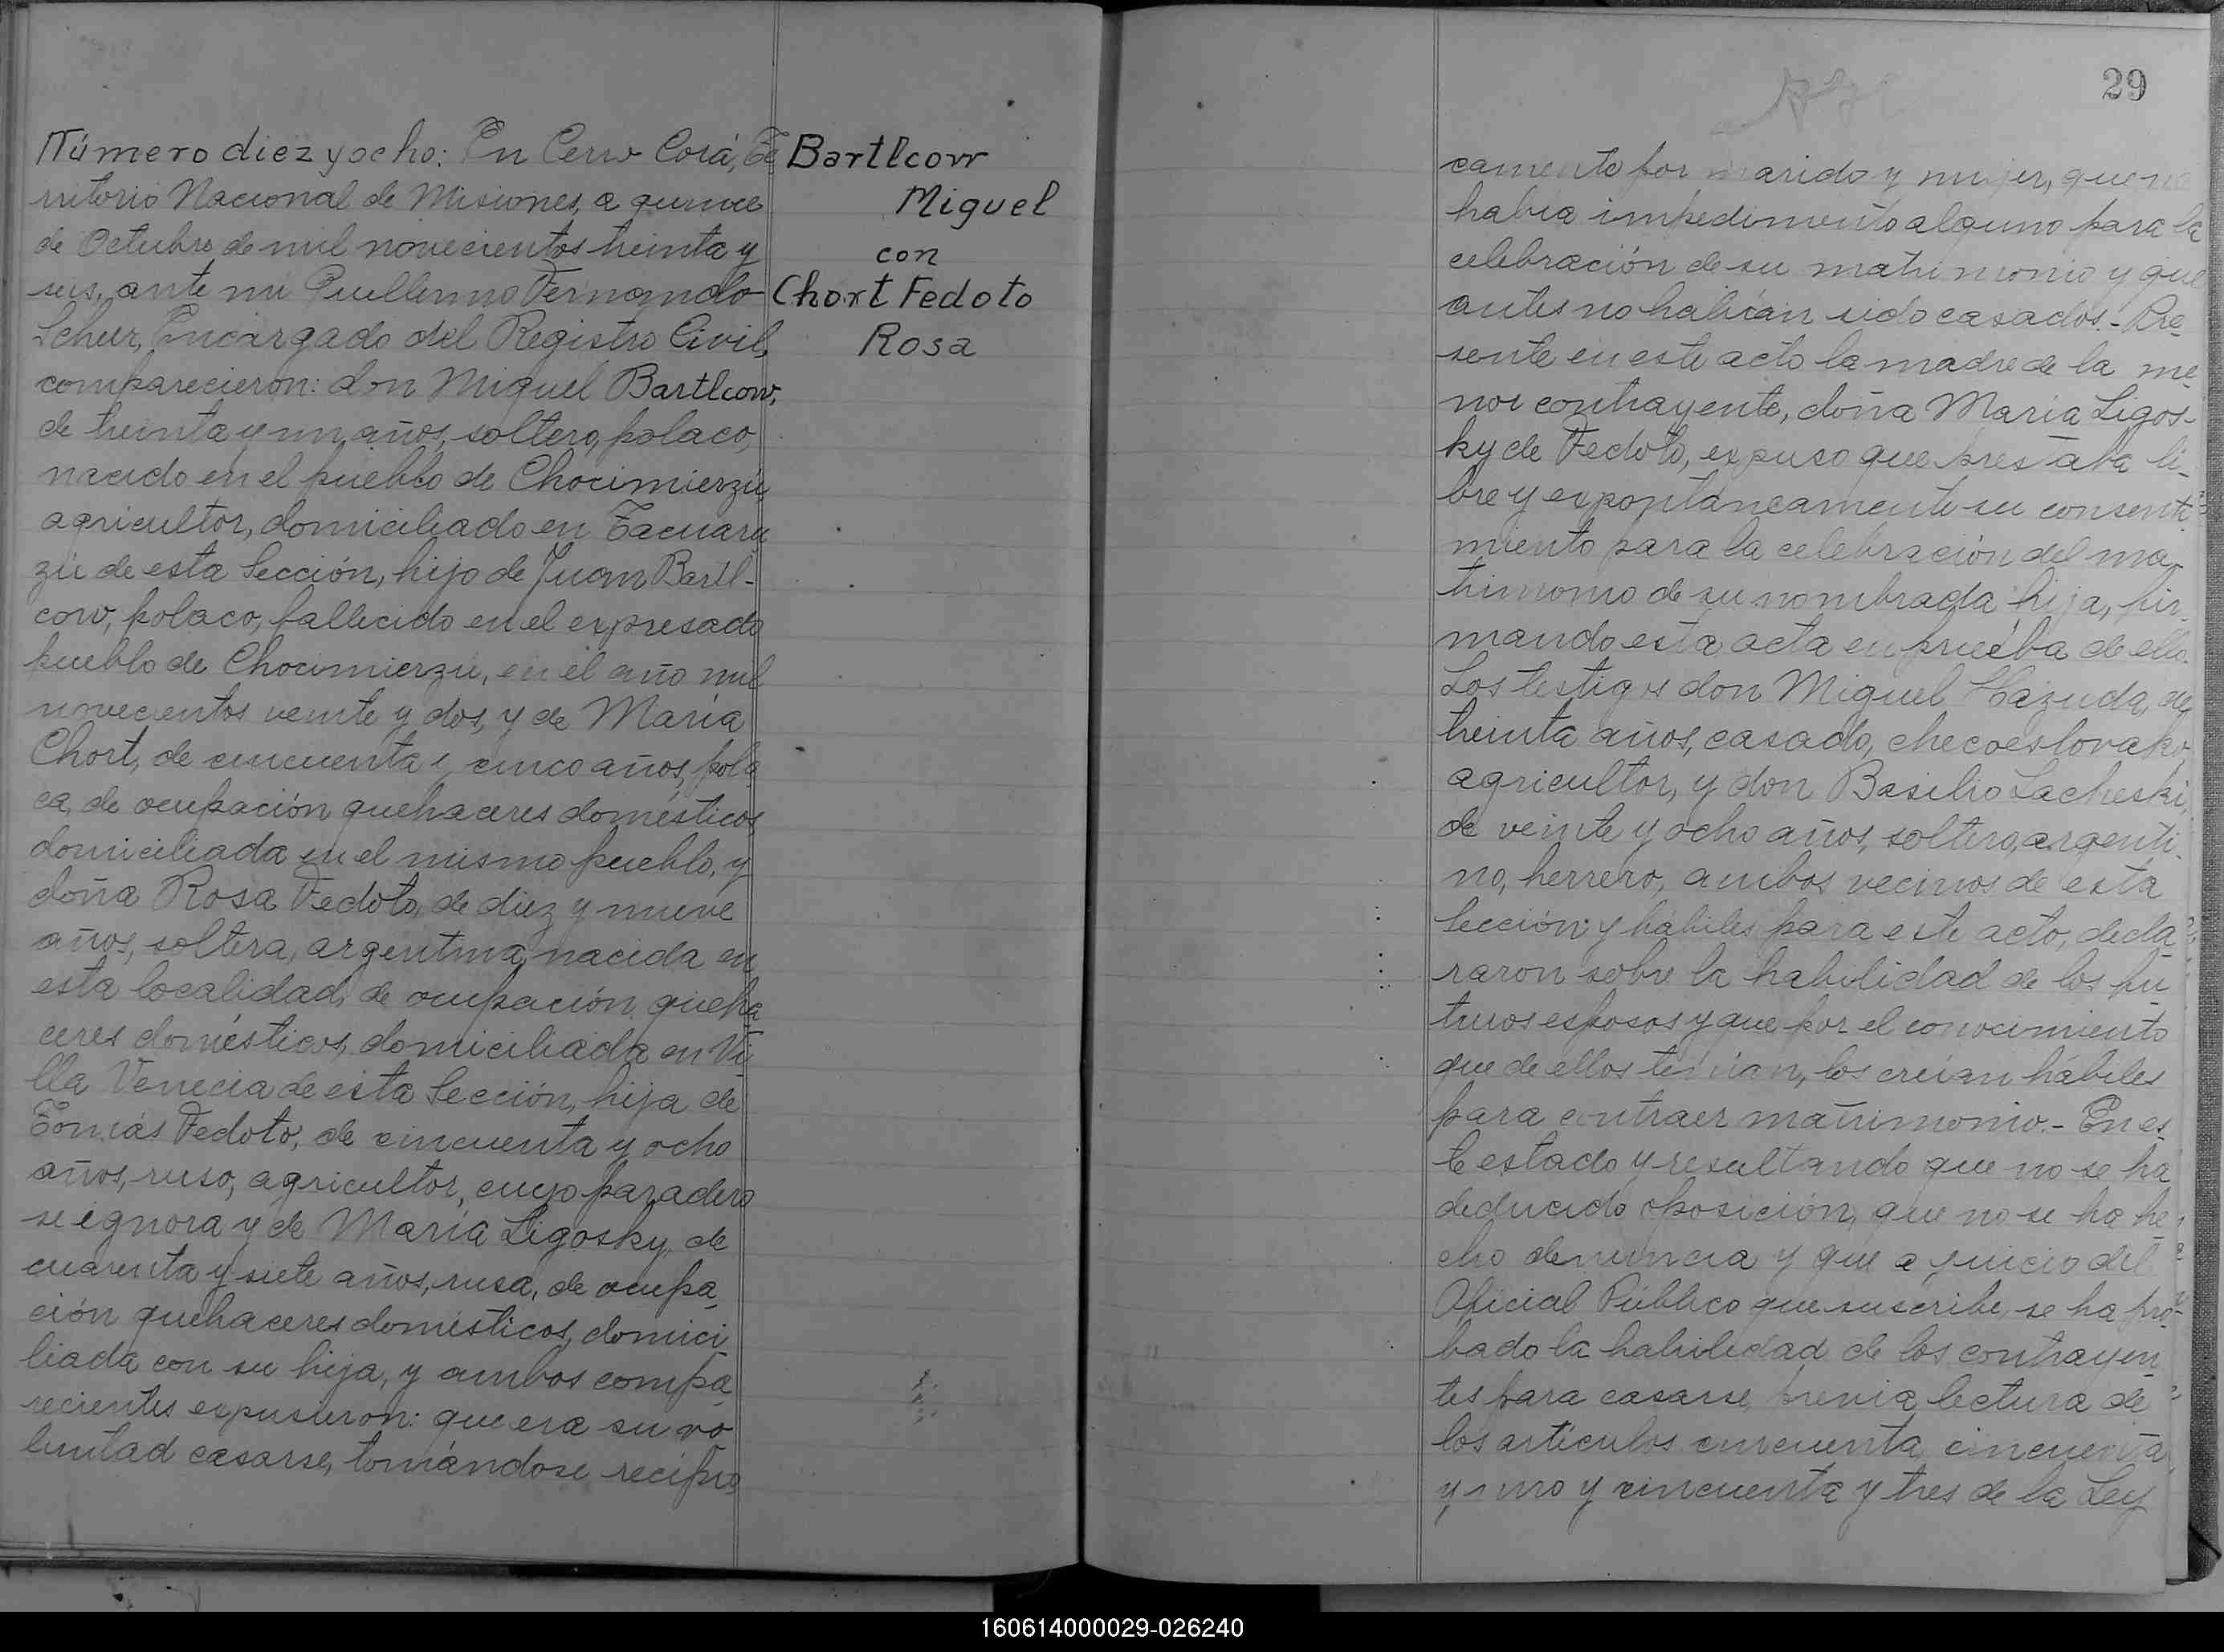 Número diez y ocho: En Cerro Corá, Te
rritorio Nacional de Misiones, a quince
de Octubre de mil novecientos treinta y
seis, ante mi Guillermo Fernando
Scheur, Encargado del Registro Civil,
comparecieron: don Miguel Bartlcow,
de treinta y un años, soltero, polaco,
nacido en el pueblo de Chocimierzú,
agricultor, domiciliado en Tacuaru
zú de esta Sección, hijo de Juan Bartl-
cow, polaco, fallecido en el expresado
pueblo de Chocimierzú, en el año mil
novecientos veinte y dos, y de María
Chort, de cincuenta y cinco años, pola
ca, de ocupación quehaceres domésticos,
domiciliada en el mismo pueblo, y
doña Rosa Fedoto, de diez y nueve
años, soltera, argentina, nacida en
esta localidad, de ocupación queha
ceres domésticos, domiciliada en Vi
lla Venecia de esta Sección, hija de
Tomás Fedoto, de cincuenta y ocho
años, ruso, agricultor, cuyo paradero
se ignora y de María Ligosky, de
cuarenta y siete años, rusa, de ocupa
ción quehaceres domésticos, domici
liada con su hija, y ambos compa
recientes expusieron: que era su vo
luntad casarse, tomándose recípro
Bartlcow
Miguel
con
Chort Fedoto
Rosa
29
camente por marido y mujer, que no
había impedimento alguno para la
celebración de su matrimonio y que
antes no habían sido casados.- Pre
sente en este acto la madre de la me
nor contrayente, doña María Ligos-
ky de Fedoto, expuso que prestaba li
bre y expontáneamente su consenti
miento para la celebración del ma-
trimonio de su nombrada hija, fir
mando esta acta en prueba de ello.
Los testigos don Miguel Hazuda, de
treinta años, casado, checoeslovako,
agricultor, y don Basilio Lacheski,
de veinte y ocho años, soltero, argenti
no, herrero, ambos vecinos de esta
Sección y hábiles para este acto, decla
raron sobre la habilidad de los fu
turos esposos y que por el conocimiento
que de ellos tenían, los creían hábiles
para contraer matrimonio.- En es
te estado y resultando que no se ha
deducido oposición, que no se ha he
cho denuncia y que a juicio del
Oficial Público que suscribe, se ha pro
bado la habilidad de los contrayen
tes para casarse, previa lectura de
los artículos cincuenta, cincuenta
y uno y cincuenta y tres de la Ley
160614000029-026240